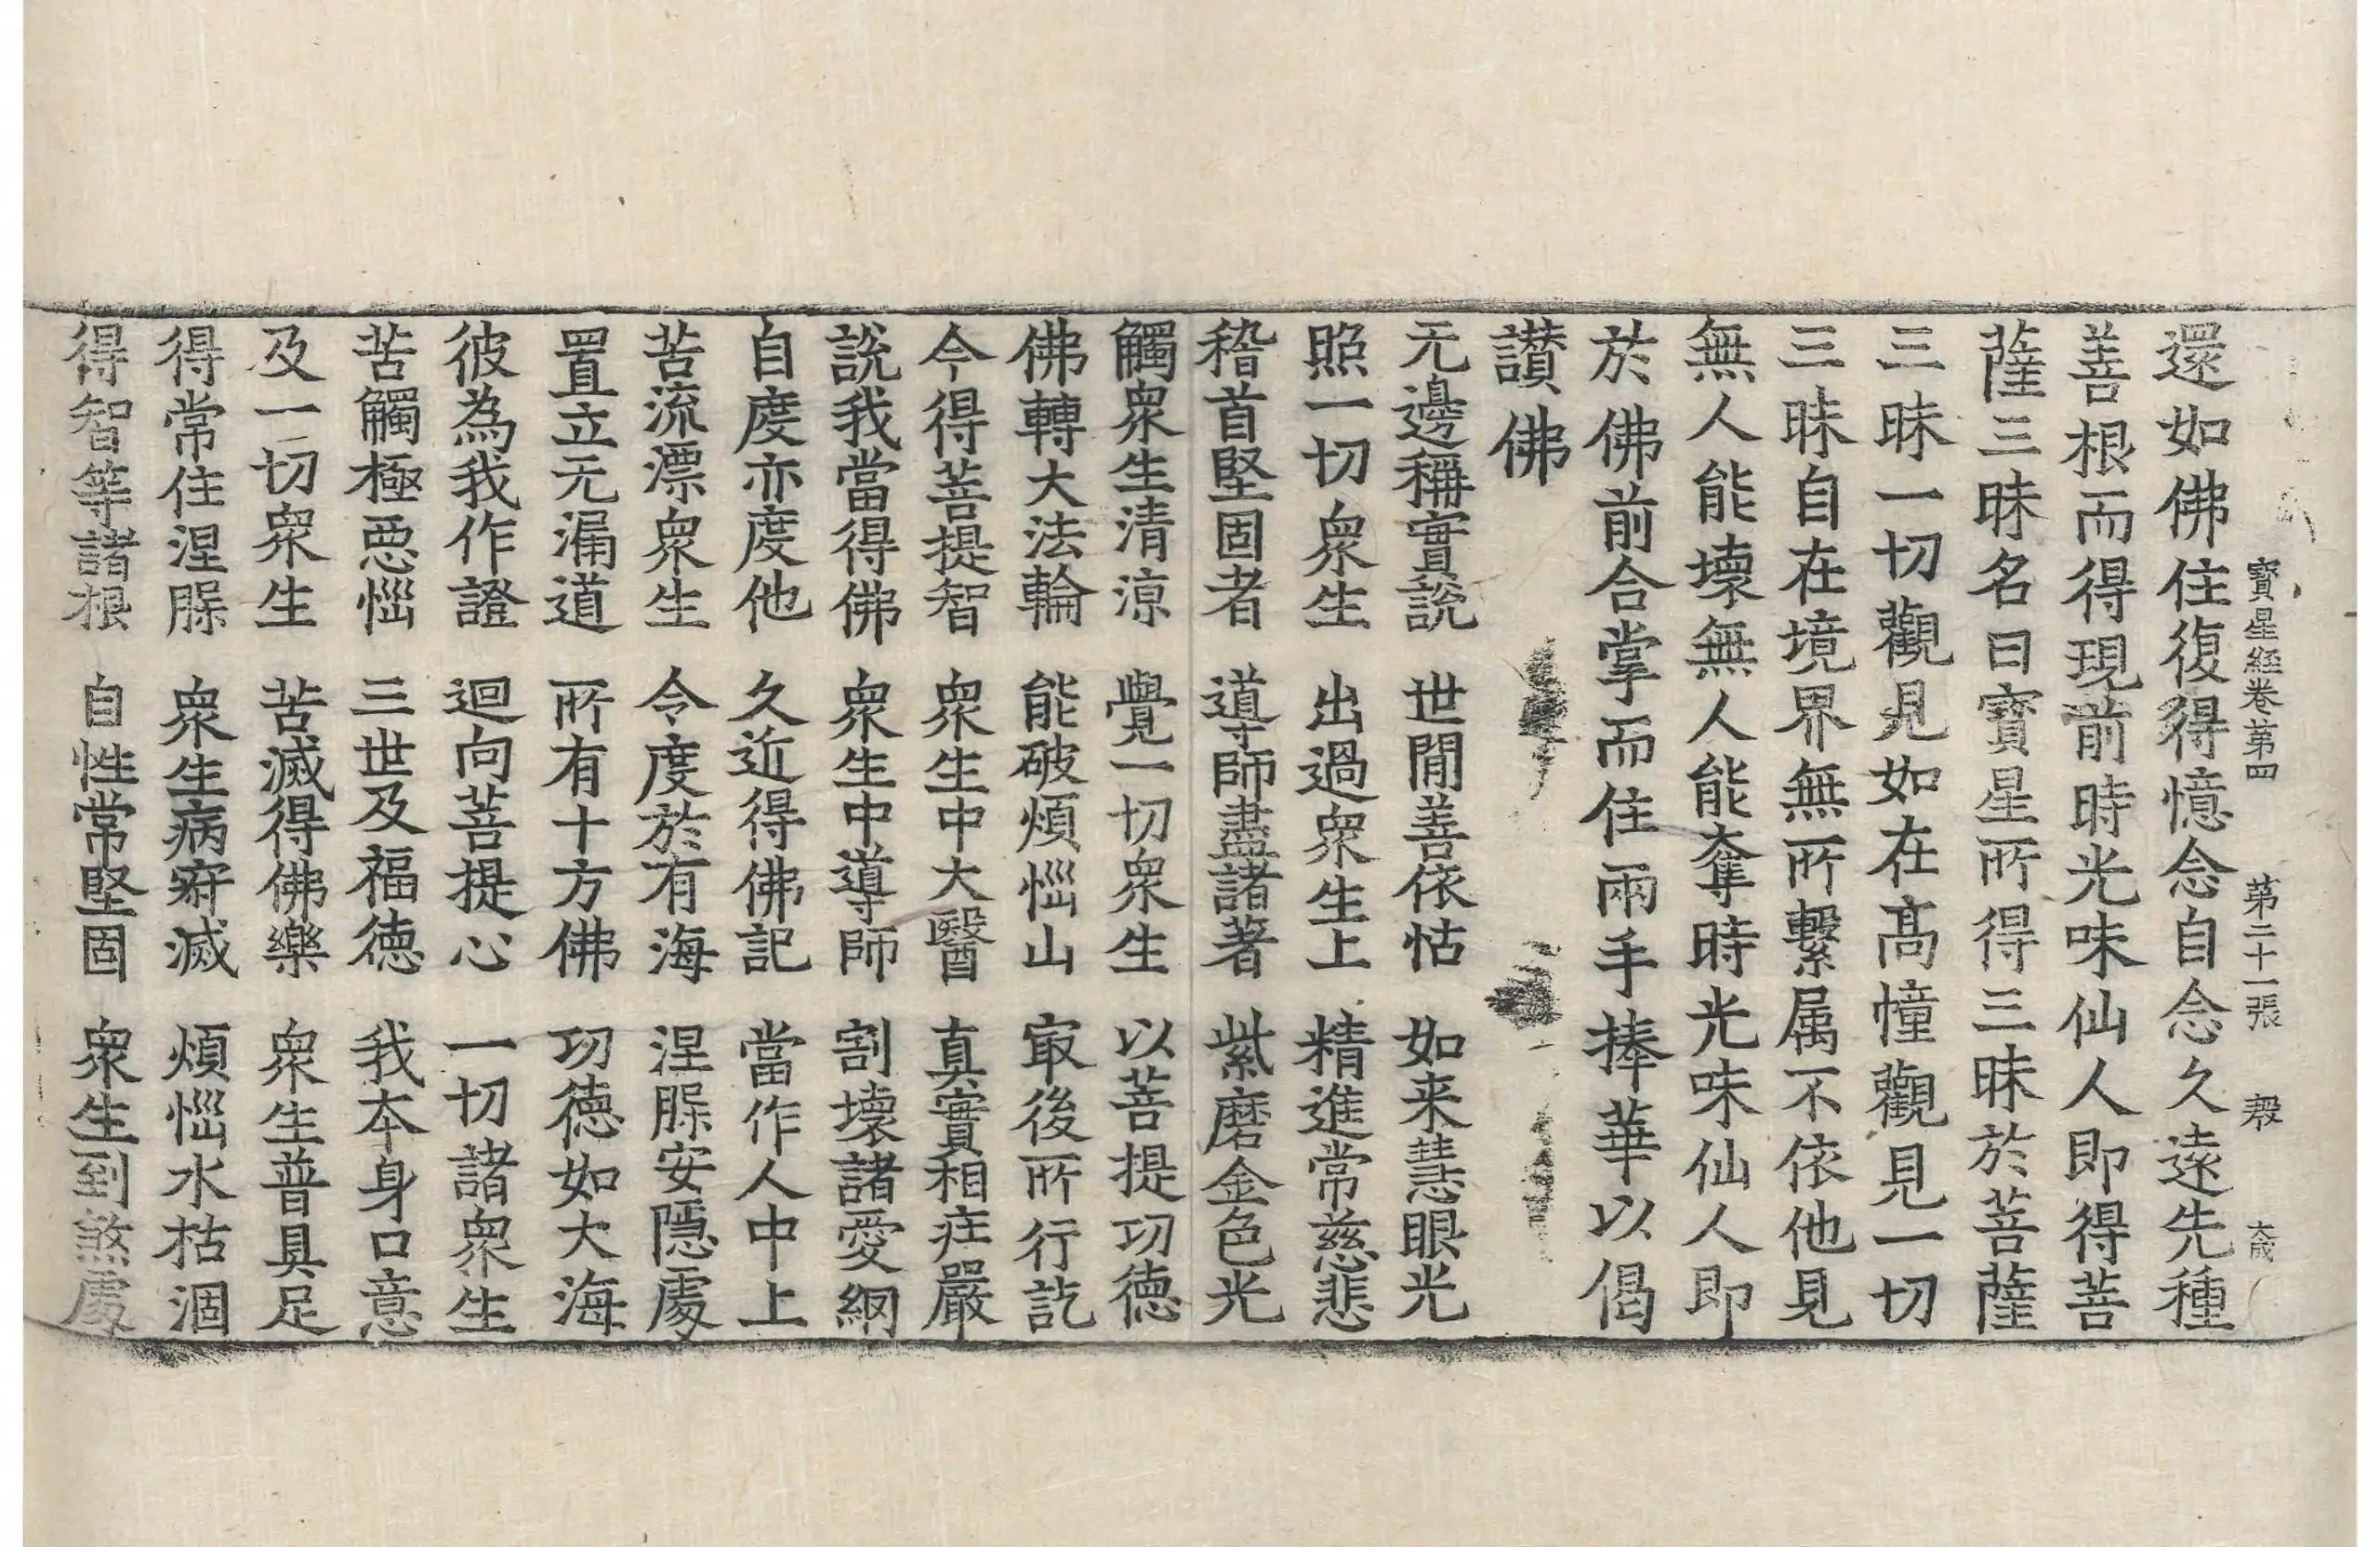 寳星経卷苐四 苐二十一張 㲉 大成
還如佛住復得憶念自念久遠先種
善根而得現前時光味仙人即得菩
薩三昧名曰寳星所得三昧於菩薩
三昧一切觀見如在髙幢觀見一切
三昧自在境界無所繫属不依他見
無人能壞無人能奪時光味仙人即
於佛前合掌而住兩手捧華以偈
讃佛
无邊稱實説 世閒善依怙 如来慧眼光
照一切衆生 出過衆生上 精進常慈悲
稽首堅固者 導師盡諸著 紫磨金色光
觸衆生清涼 覺一切衆生 以菩提功德
佛轉大法輪 能破煩惱山 㝡後所行訖
今得菩提智 衆生中大醫 真實相莊嚴
説我當得佛 衆生中導師 割壞諸愛網
自度亦度他 久近得佛記 當作人中上
苦流漂衆生 令度於有海 涅槃安隱處
置立无漏道 所有十方佛 功德如大海
彼為我作證 迴向菩提心 一切諸衆生
苦觸極惡惱 三世及福德 我本身口意
及一切衆生 苦滅得佛樂 衆生普具足
得常住涅槃 衆生病㾱滅 煩惱水枯涸
得智等諸根 自性常堅固 衆生到煞處